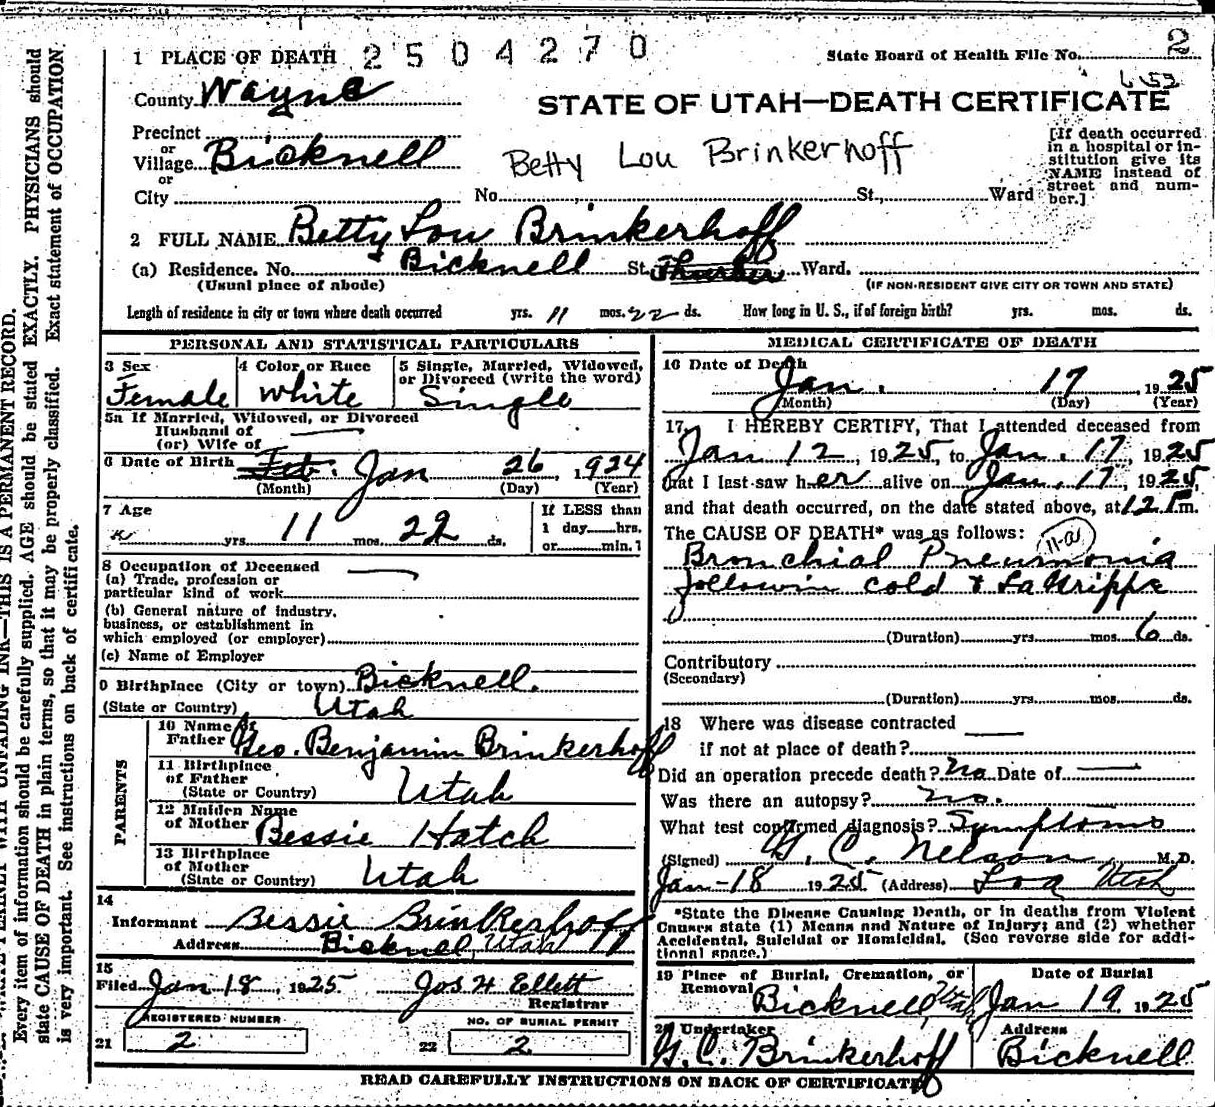 1 PLACE OF DEATH 2504270
State Board of Health File No. 2
County Wayne
STATE OF UTAH—DEATH CERTIFICATE
Precinct
or
Village Bicknell
or
City
Betty Lou Brinkerhoff
No. St., Ward
[If death occurred
in a hospital or in-
stitution give its
NAME instead of
street and num-
ber.]
2 FULL NAME Betty Lou Brinkerhoff
(a) Residence. No. Bicknell St. Thurber Ward.
(Usual place of abode) (IF NON-RESIDENT GIVE CITY OR TOWN AND STATE)
Length of residence in city or town where death occurred yrs. 11 mos. 22 ds. How long in U. S., if of foreign birth? yrs. mos. ds.
PERSONAL AND STATISTICAL PARTICULARS
3 Sex 4 Color or Race 5 Single, Married, Widowed,
or Divorced (write the word)
Female white Single
5a If Married, Widowed, or Divorced
Husband of
(or) Wife of
6 Date of Birth Feb. Jan 26, 1924
(Month) (Day) (Year)
7 Age
yrs 11 mos. 22 ds.
If LESS than
1 day hrs.
or min.
8 Occupation of Deceased
(a) Trade, profession or
particular kind of work
(b) General nature of industry,
business, or establishment in
which employed (or employer)
(c) Name of Employer
9 Birthplace (City or town) Bicknell.
(State or Country) Utah
PARENTS
10 Name of
Father Geo. Benjamin Brinkerhoff
11 Birthplace
of Father
(State or Country) Utah
12 Maiden Name
of Mother Bessie Hatch
13 Birthplace
of Mother
(State or Country) Utah
14
Informant Bessie Brinkerhoff
Address Bicknell, Utah
15
Filed Jan 18, 1925 Jos H Ellett
Registrar
REGISTERED NUMBER NO. OF BURIAL PERMIT
21 2 22 2
MEDICAL CERTIFICATE OF DEATH
16 Date of Death
Jan. 17, 1925
(Month) (Day) (Year)
17. I HEREBY CERTIFY, That I attended deceased from
Jan 12, 1925, to Jan. 17, 1925
that I last saw her alive on Jan. 17, 1925,
and that death occurred, on the date stated above, at 12 P.m.
The CAUSE OF DEATH* was as follows: 11-a
Bronchial Pneumonia
followin cold & LaGrippe
(Duration) yrs. mos. 6 ds.
Contributory
(Secondary)
(Duration) yrs. mos. ds.
18 Where was disease contracted
if not at place of death?
Did an operation precede death? No Date of
Was there an autopsy? no.
What test confirmed diagnosis? Symptoms
(Signed) G. C. Nelson, M.D.
Jan-18 1925 (Address) Loa Utah
*State the Disease Causing Death, or in deaths from Violent
Causes state (1) Means and Nature of Injury; and (2) whether
Accidental, Suicidal or Homicidal. (See reverse side for addi-
tional space.)
19 Place of Burial, Cremation, or
Removal Bicknell Utah
Date of Burial
Jan 19 1925
20 Undertaker
G. C. Brinkerhoff
Address
Bicknell
READ CAREFULLY INSTRUCTIONS ON BACK OF CERTIFICATE
WRITE PLAINLY WITH UNFADING INK—THIS IS A PERMANENT RECORD.
Every item of information should be carefully supplied. AGE should be stated EXACTLY. PHYSICIANS should
state CAUSE OF DEATH in plain terms, so that it may be properly classified. Exact statement of OCCUPATION
is very important. See instructions on back of certificate.